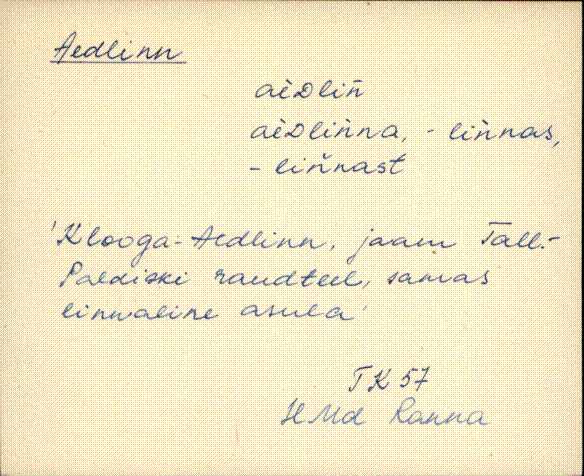 Aedlinn
aèDlin̄
aèDlin̄na, - lin̄nas,
- lin̄nast
'Klooga-Aedlinn, jaam Tall.-
Paldiski raudteel, samas
linnaline asula'
TK 57
HMd Ranna